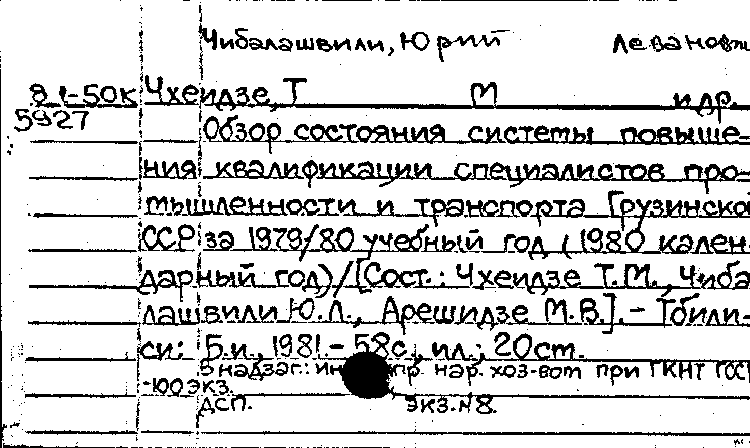 Чибалашвили, Юрий Леванович
81-50К Чхеидзе, Т М и др.
5927 Обзор состояния системы повыше-
ния квалификации специалистов про-
мышленности и транспорта Грузинской
ССР за 1979/80 учебный год (1980 кален-
дарный год)/[Сост.: Чхеидзе Т.М., Чиба-
лашвили Ю.Л., Арешидзе М.В.]. - Тбили-
си: Б.и., 1981. - 58с., ил.; 20ст.
В надзаг.: упр. нар. хоз-вом при ГКНТ
-100 экз.
ДСП. Экз. N8.